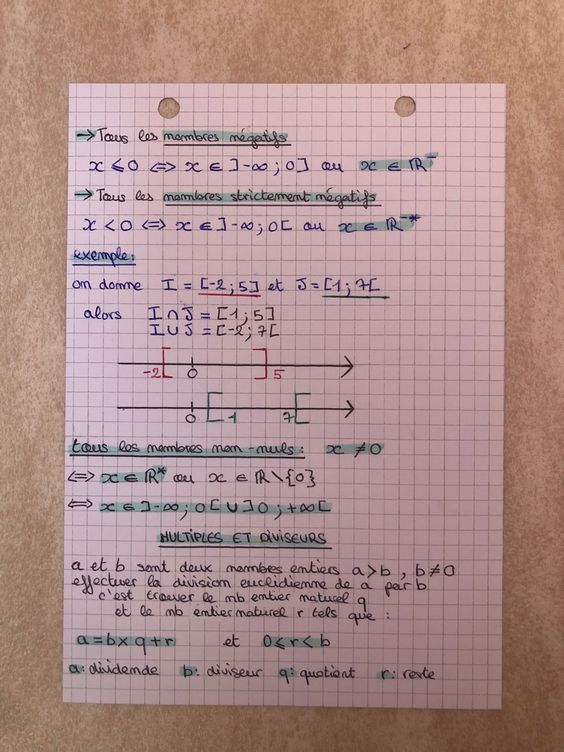 → Tous les nombres négatifs
x ⩽ 0 ⟺ x ∈ ]-∞ ; 0] ou x ∈ ℝ⁻
→ Tous les nombres strictement négatifs
x < 0 ⟺ x ∈ ]-∞ ; 0[ ou x ∈ ℝ⁻*
exemple:
on donne I = [-2 ; 5] et J = [1 ; 7[
alors I ∩ J = [1 ; 5]
I ∪ J = [-2 ; 7[
-2 [ 0 ] 5
0 [ 1 7 [
tous les nombres non-nuls : x ≠ 0
⟺ x ∈ ℝ* ou x ∈ ℝ \ {0}
⟺ x ∈ ]-∞ ; 0[ ∪ ]0 ; +∞[
MULTIPLES ET DIVISEURS
a et b sont deux nombres entiers a > b , b ≠ 0
effectuer la division euclidienne de a par b
c'est trouver le nb entier naturel q
et le nb entier naturel r tels que :
a = b × q + r et 0 ⩽ r < b
a: dividende b: diviseur q: quotient r: reste